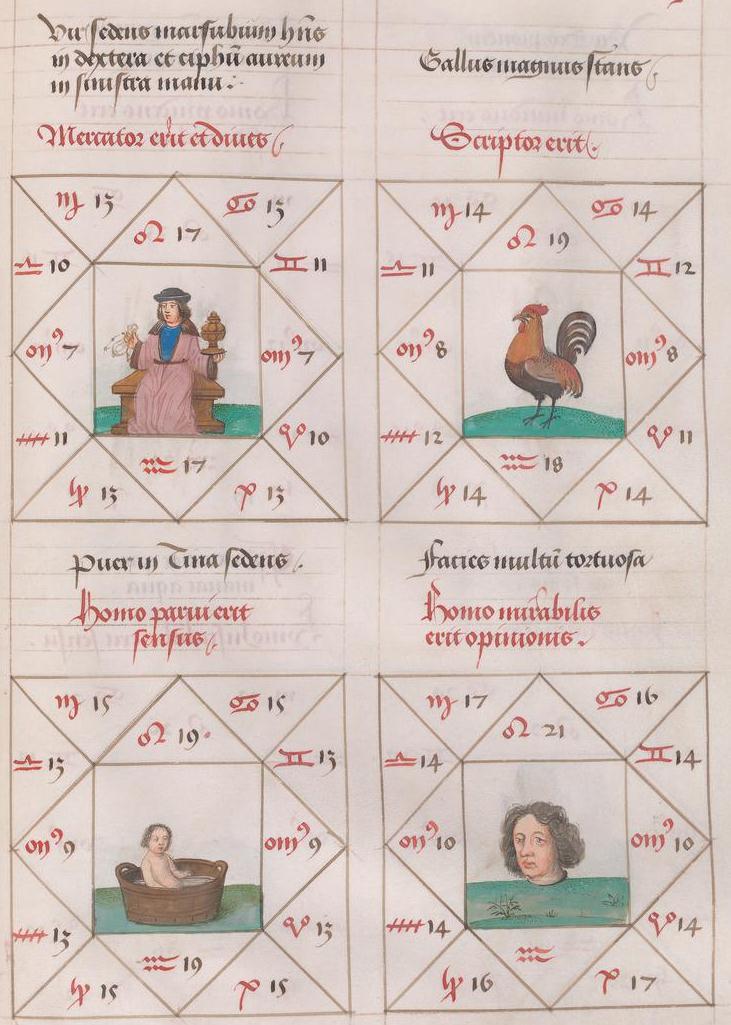 Vir sedens marsubium hñs
in dextera et ciphũ aureum
in sinistra manu.
Mercator erit et diues
♍ 13 ♋ 13
♌ 17
♎ 10 ♊ 11
7 7
11 10
♒ 17
13 13
Gallus magnus stans
Scriptor erit
♍ 14 ♋ 14
♌ 19
♎ 11 ♊ 12
8 8
12 11
♒ 18
14 14
Puer in Tina sedens.
Homo parui erit
sensus
♍ 15 ♋ 15
♌ 19
♎ 13 ♊ 13
9 9
13 13
♒ 19
15 15
Facies multũ tortuosa
Homo mirabilis
erit opinionis.
♍ 17 ♋ 16
♌ 21
♎ 14 ♊ 14
10 10
14 14
♒
16 17